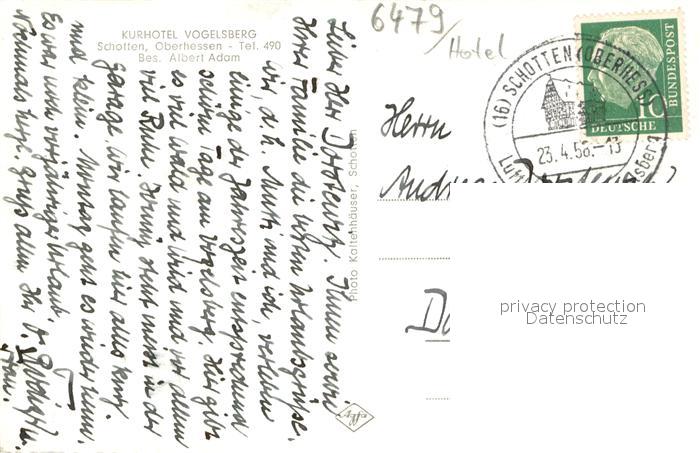 KURHOTEL VOGELSBERG
Schotten, Oberhessen - Tel. 490
Bes. Albert Adam
6479
Hotel
(16) SCHOTTEN (OBERHESS)
23.4.58.-13
Luft
lsberg
10
DEUTSCHE
BUNDESPOST
Herrn
Photo Kaltenhäuser, Schotten
Agfa
Lieber Herr Ihnen sowie
Ihrer Familie die besten Urlaubsgrüsse.
Wir, d.h. Mutti und ich, verleben
einige der Jahreszeit entsprechend
Tage am Vogelsberg. Hier gibt
es viel Wald und Wild und vor allem
viel Ruhe. steht mit in der
Garage, wir laufen hier alles kurz
und klein. Montag geht es wieder heim.
Es war unser vorjähriger Urlaub.
Nochmals herzl. Grüsse allen Ihr
Frau.
privacy protection
Datenschutz